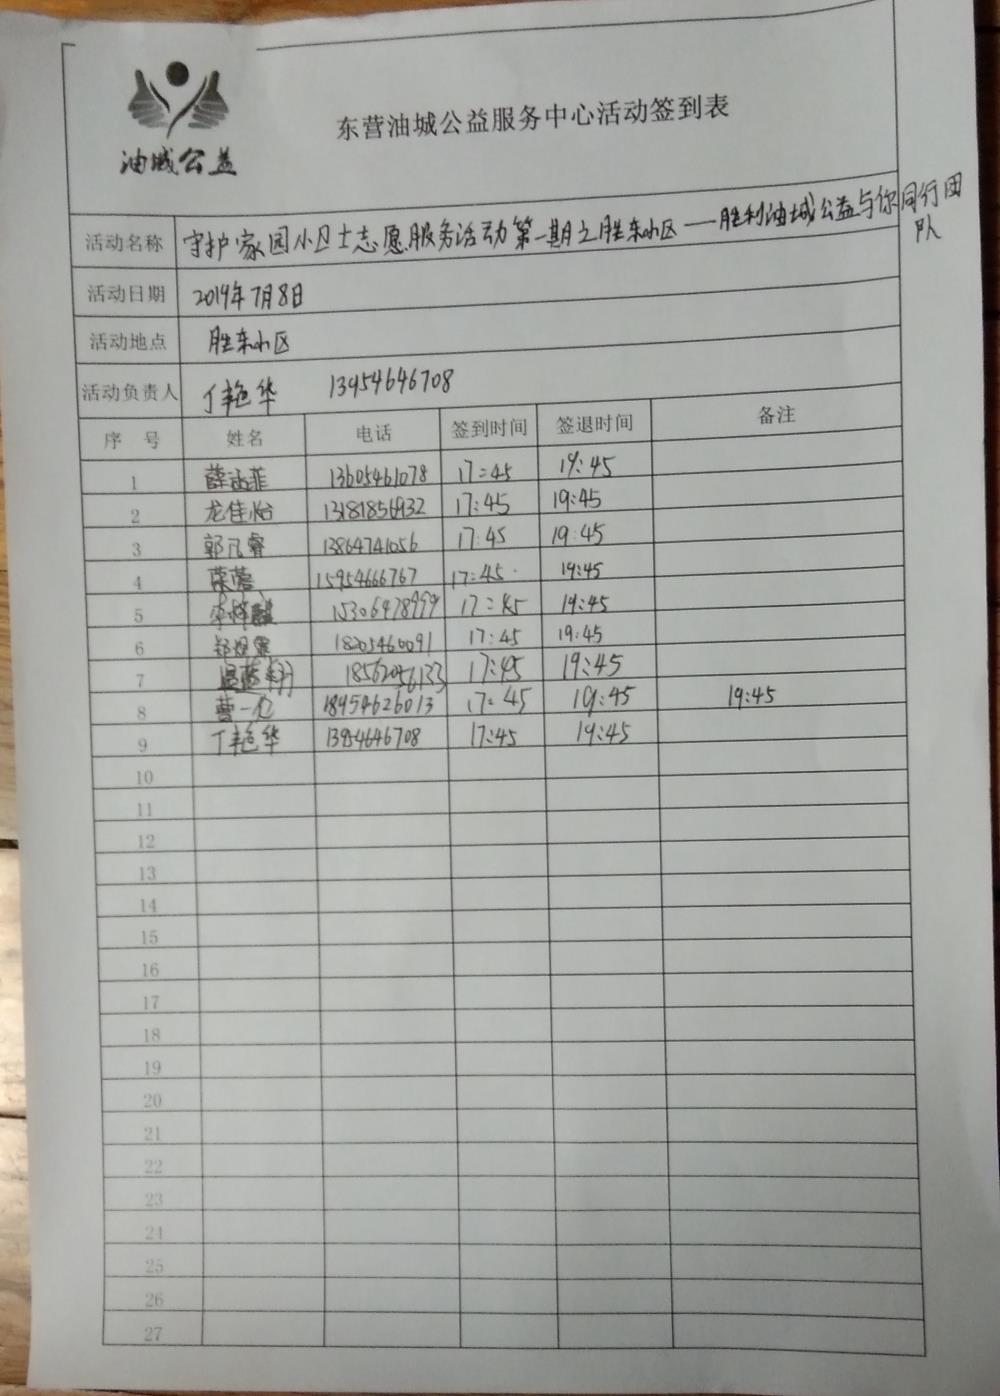 油城公益
东营油城公益服务中心活动签到表
活动名称 守护家园小卫士志愿服务活动第一期之胜东小区——胜利油城公益与你同行团
队
活动日期 2019年7月8日
活动地点 胜东小区
活动负责人 丁艳华 13954646708
序 号 姓名 电话 签到时间 签退时间 备注
1 薛涵菲 13605461078 17:45 19:45
2 龙佳怡 13181856932 17:45 19:45
3 郭凡睿 13864741056 17:45 19:45
4 荣蓉 15954666767 17:45 19:45
5 15306478999 17:45 19:45
6 18205460091 17:45 19:45
7 17:45 19:45
8 曹一亿 18954626013 17:45 19:45 19:45
9 丁艳华 13954646708 17:45 19:45
10
11
12
13
14
15
16
17
18
19
20
21
22
23
24
25
26
27